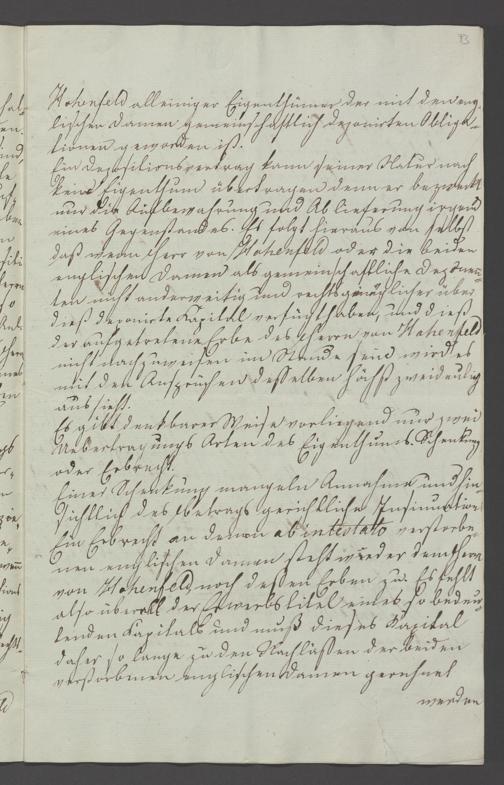 Hohenfeld alleiniger Eigenthümer der mit den eng-
lischen Damen gemeinschaftlich deponirten Obliga-
tionen geworden ist.
Ein Depositionsvertrag kann seiner Natur nach
kein Eigenthum übertragen denn er bezweckt
nur die Aufbewahrung und Ablieferung irgend
eines Gegenstandes. Es folgt hieraus von selbst
daß wenn Herr von Hohenfeld oder die beiden
englischen Damen als gemeinschaftliche Deponen-
ten nicht anderweitig und rechtsgenüglicher über
dieß deponirte Kapital verfügt haben, und dieß
der aufgetretene Erbe des Herrn von Hohenfeld
nicht nachzuweisen im Stande seie wird es
mit den Ansprüchen desselben höchst zweideutig
aussieht.
Es gibt denkbarer Weise vorliegend nur zwei
Uebertragungs Arten des Eigenthums. Schenkung
oder Erbrecht.
Einer Schenkung mangeln Annahme und hin-
sichtlich des Betrags gerichtliche Insinuation
Ein Erbrecht an denen ab intestato verstorbe-
nen englischen Damen steht wieder dem Herrn
von Hohenfeld noch dessen Erben zu. Es fehlt
also überall der Erwerbstitel eines so bedeu-
tenden Kapitals und muß dieses Kapital
daher so lange zu den Nachlässen der beiden
verstorbenen englischen Damen gerechnet
werden